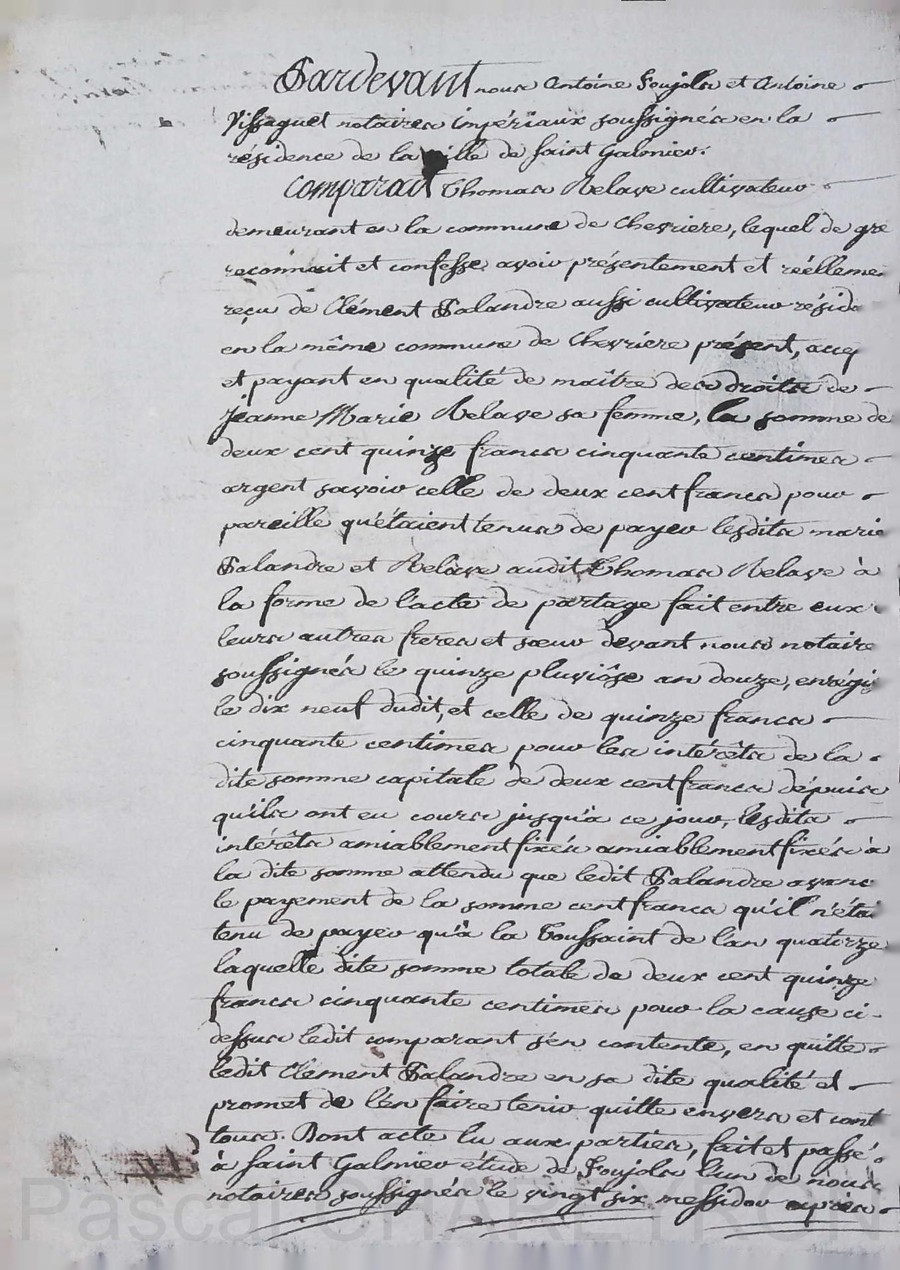 Pardevant nous Antoine Soujols et Antoine
Vissaguet notaires impériaux soussignés en la
résidence de la ville de saint Galmier.
Comparait Thomas Relave cultivateur
demeurant en la commune de Chevriere, lequel de gre
reconnait et confesse avoir présentement et réelleme
reçu de Clément Palandre aussi cultivateur réside
en la même commune de Chevriere présent, accep
et payant en qualité de maître des droits de
Jeanne Marie Relave sa femme, la somme de
deux cent quinze francs cinquante centimes
argent savoir celle de deux cent francs pour
pareille qu'étaient tenus de payer lesdits marie
Palandre et Relave audit Thomas Relave à
la forme de l'acte de partage fait entre eux
leurs autres freres et sœur devant nous notaire
soussignés le quinze pluviôse an douze, enrégis
le dix neuf dudit, et celle de quinze francs
cinquante centimes pour les intérêts de la
dite somme capitale de deux cent francs dépuis
qu'ils ont eu cours jusqu'à ce jour, lesdits
intérêts amiablement fixés amiablement fixés à
la dite somme attendu que ledit Palandre avance
le payement de la somme cent francs qu'il n'étai
tenu de payer qu'à la Toussaint de l'an quatorze
laquelle dite somme totale de deux cent quinze
francs cinquante centimes pour la cause ci-
dessus ledit comparant s'en contente, en quitte
ledit Clement Palandre en sa dite qualité et
promet de l'en faire tenir quitte envers et cont
tous. Dont acte lu aux parties, fait et passé
à saint Galmier étude de Soujols l'un de nous
notaires soussignés le vingt six messidor après
Pascal CHAREYRON